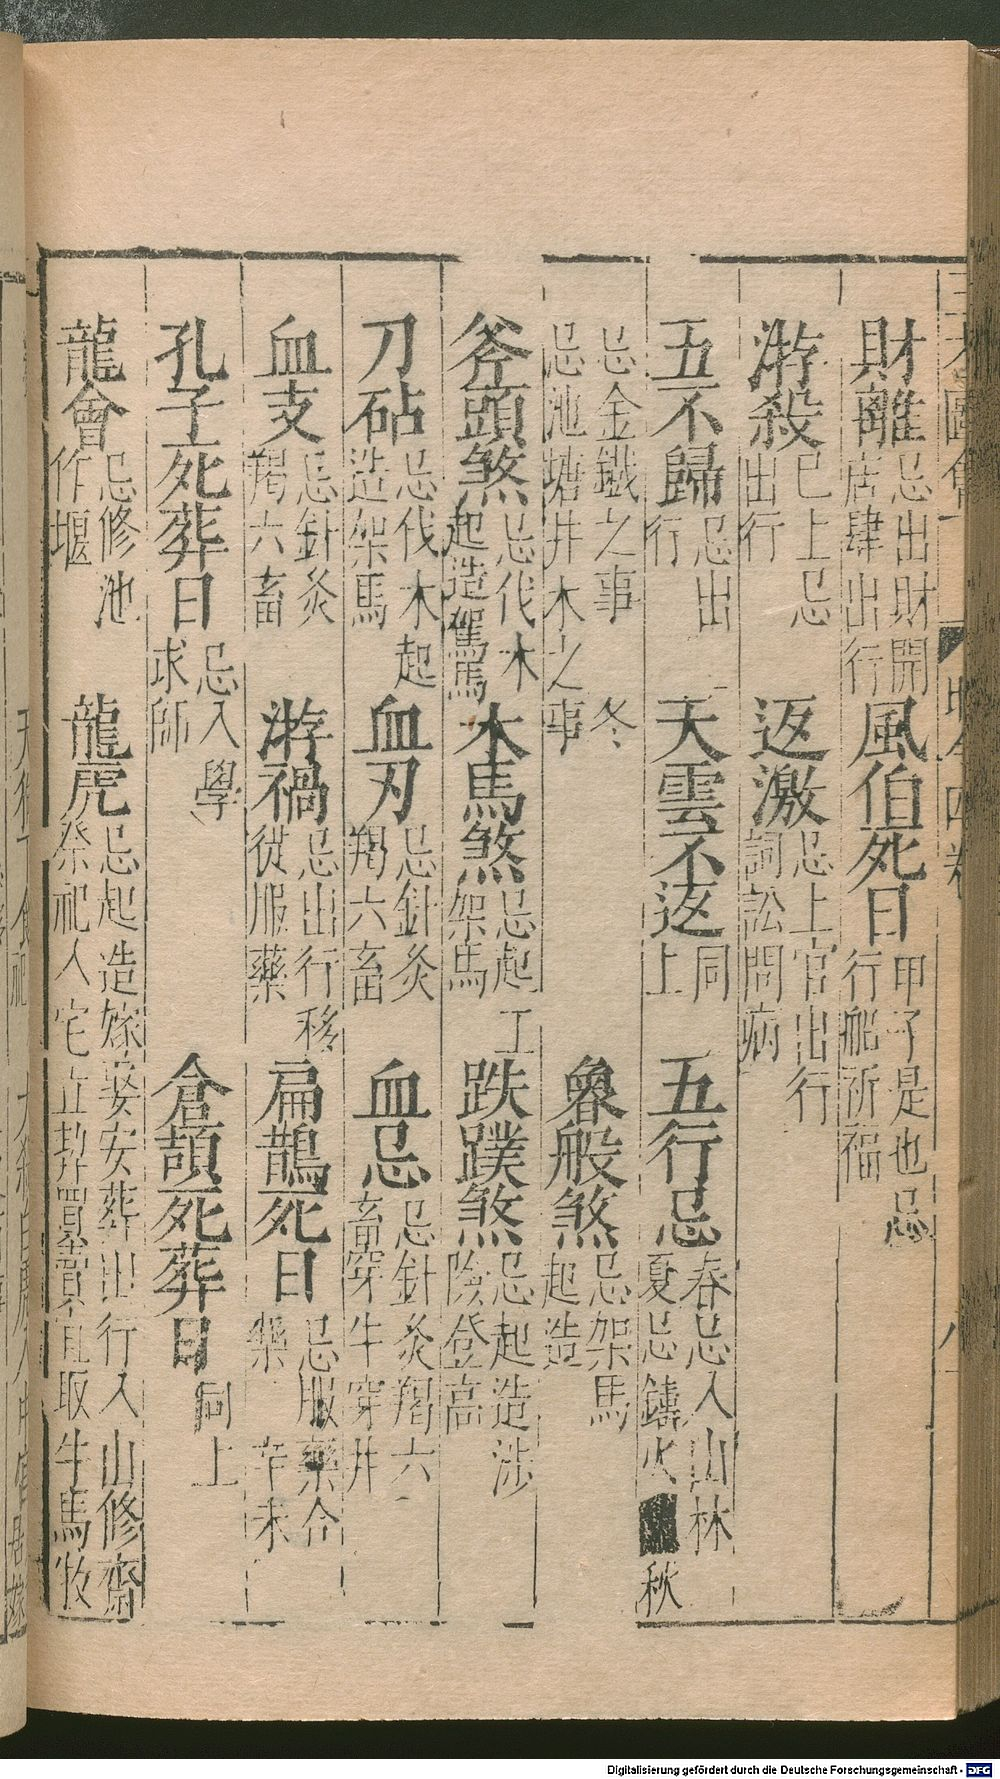 財離忌出財開店肆出行 風伯死日甲子是也忌行船祈福
游殺已上忌出行 返激忌上官出行詞訟問病
五不歸忌出行 天雲不返同上 五行忌春忌入山林夏忌鑄火秋
忌金鐵之事冬忌池塘井木之事 魯般煞忌架馬起造
斧頭煞忌伐木起造駕馬 木馬煞忌起工架馬 跌蹼煞忌起造涉險登高
刀砧忌伐木起造架馬 血刃忌針灸羯六畜 血忌忌針灸羯六畜穿牛穿井
血支忌針灸羯六畜 游禍忌出行移徙服藥 扁鵲死日忌服藥合藥辛未
孔子死葬日忌入學求師 倉頡死葬日同上
龍會忌修池作堰 龍虎忌起造嫁娶安葬出行入山修齋祭祀人宅立契買賣宜取牛馬牧
Digitalisierung gefördert durch die Deutsche Forschungsgemeinschaft - DFG